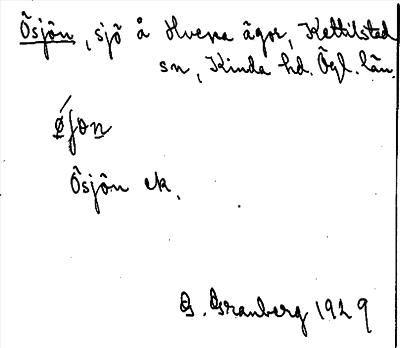 Ösjön, sjö å Hvena ägor, Kettilstad
sn, Kinda hd. Ögl. län.
Ösjön ek.
G. Granberg 1929